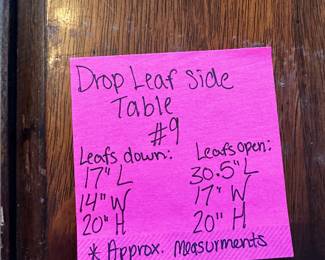 Drop Leaf Side
Table
#9
Leafs down: Leafs open:
17" L 30.5" L
14" W 17" W
20" H 20" H
* Approx. Measurments